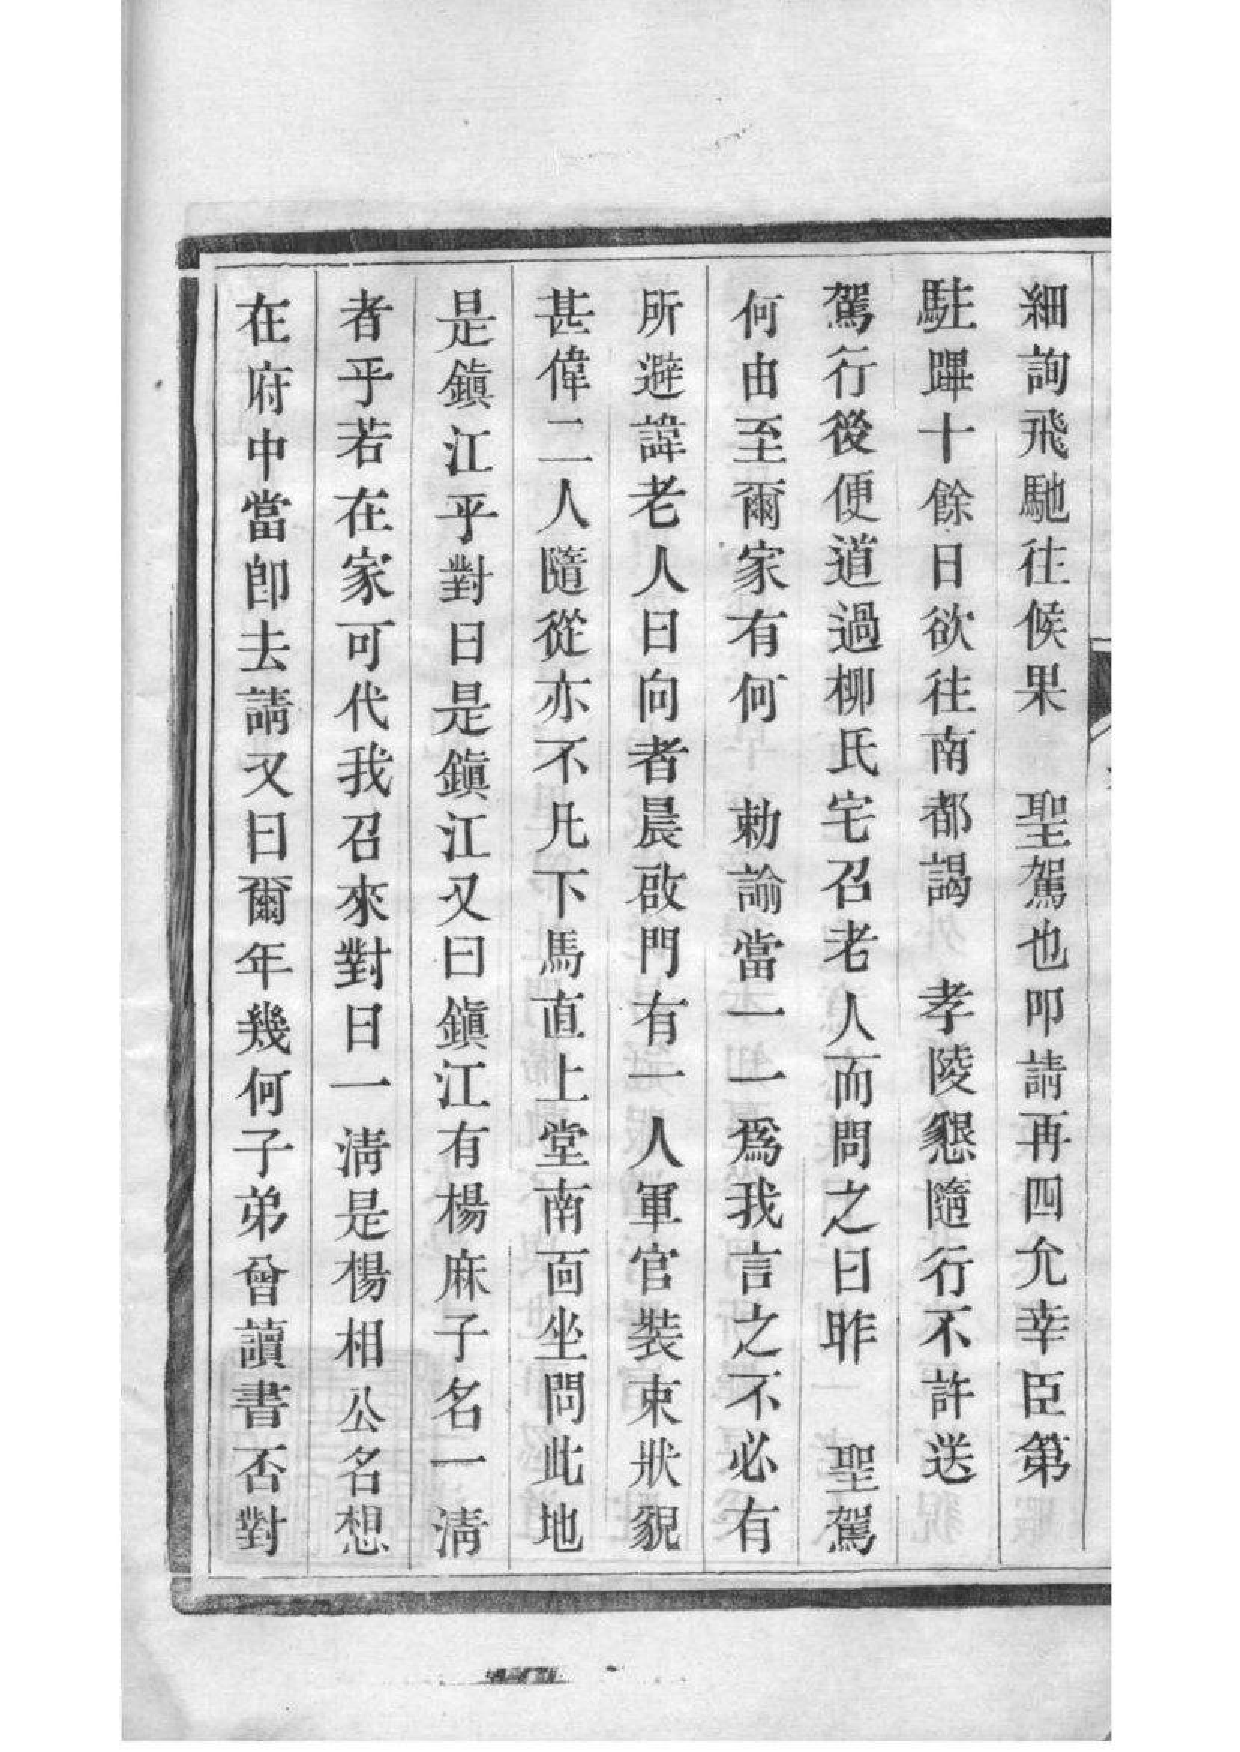 細詢飛馳往候果　聖駕也叩請再四允幸臣第
駐蹕十餘日欲往南都謁　孝陵懇隨行不許送
駕行後便道過柳氏宅召老人而問之曰昨　聖駕
何由至爾家有何　勅諭當一一爲我言之不必有
所避諱老人曰向者晨啟門有一人軍官裝束狀貌
甚偉二人隨從亦不凡下馬直上堂南面坐問此地
是鎭江乎對曰是鎭江又曰鎭江有楊麻子名一淸
者乎若在家可代我召來對曰一淸是楊相公名想
在府中當卽去請又曰爾年幾何子弟曾讀書否對